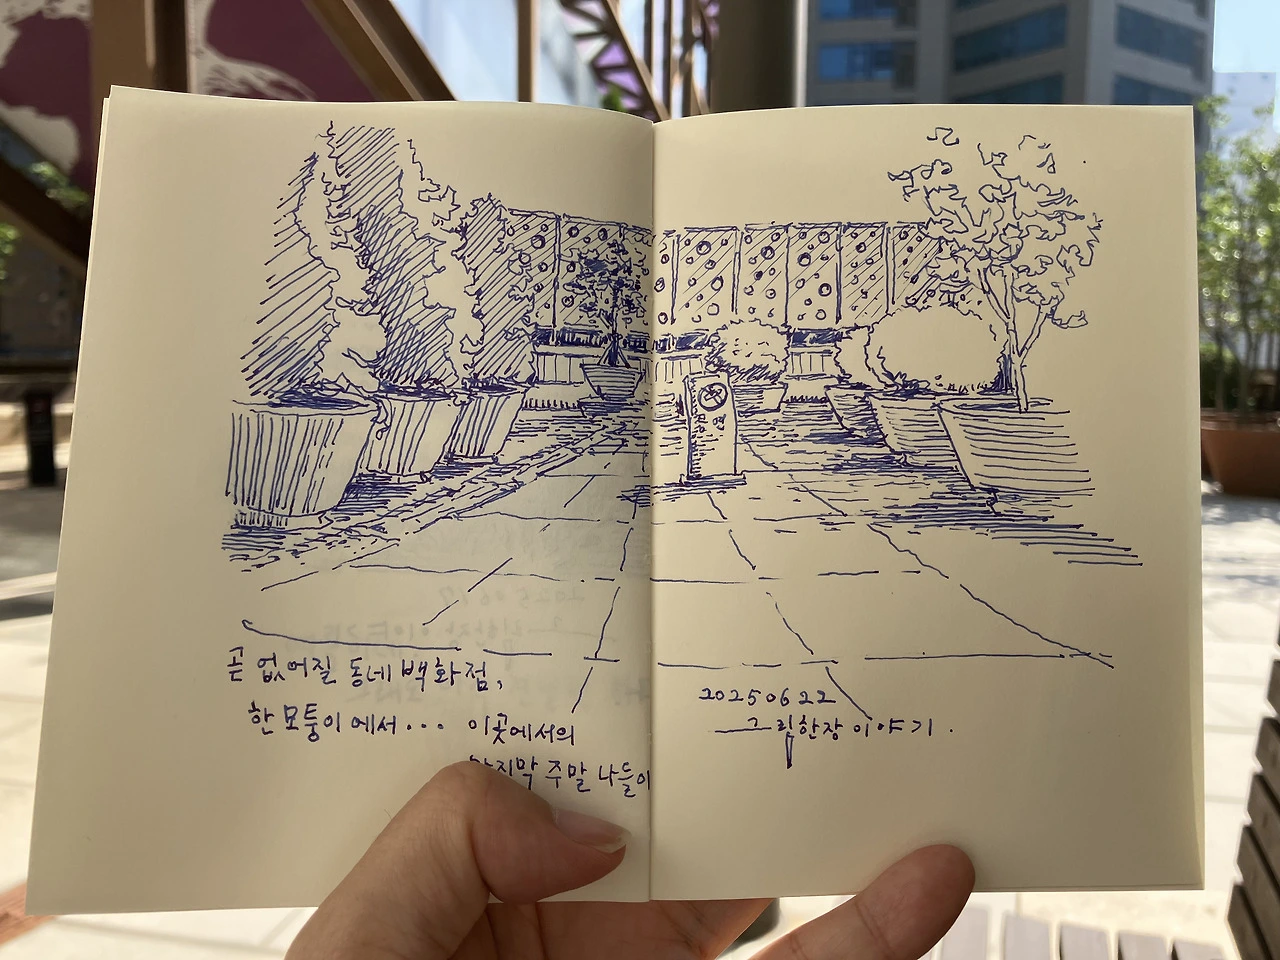 곧 없어질 동네 백화점,
한 모퉁이에서... 이곳에서의
마지막 주말 나들이
20250622
그림한장이야기.
금연